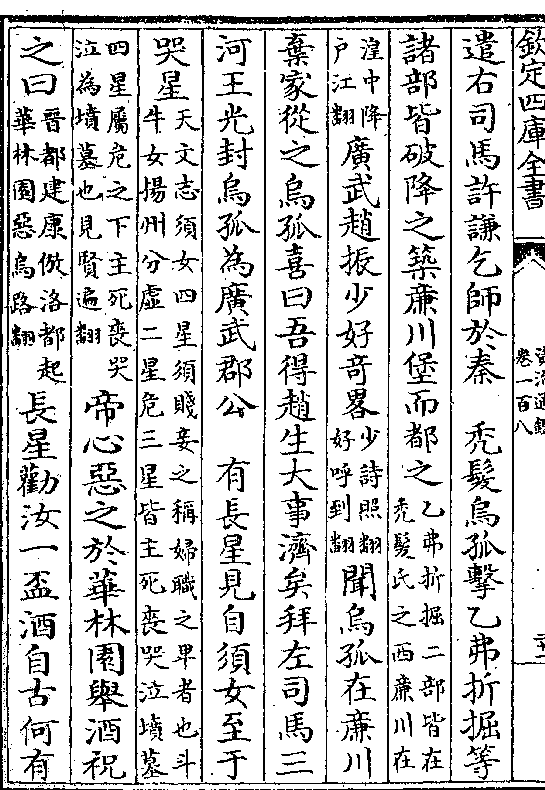 欽定四庫全書
資治通鑑
卷一百八
遣右司馬許謙乞師於秦　禿髮烏孤擊乙弗折掘等
諸部皆破降之築亷川堡而都之
乙弗折掘二部皆在
禿髮氏之西亷川在
湟中降
户江翻
廣武趙振少好竒畧
少詩照翻
好呼到翻
聞烏孤在亷川
棄家從之烏孤喜曰吾得趙生大事濟矣拜左司馬三
河王光封烏孤為廣武郡公　有長星見自須女至于
哭星
天文志須女四星須賤妾之稱婦職之卑者也斗
牛女揚州分虛二星危三星皆主死喪哭泣墳墓
四星屬危之下主死喪哭
泣為墳墓也見賢遍翻
帝心惡之於華林園舉酒祝
之曰
晉都建康倣洛都起
華林園惡烏路翻
長星勸汝一盃酒自古何有